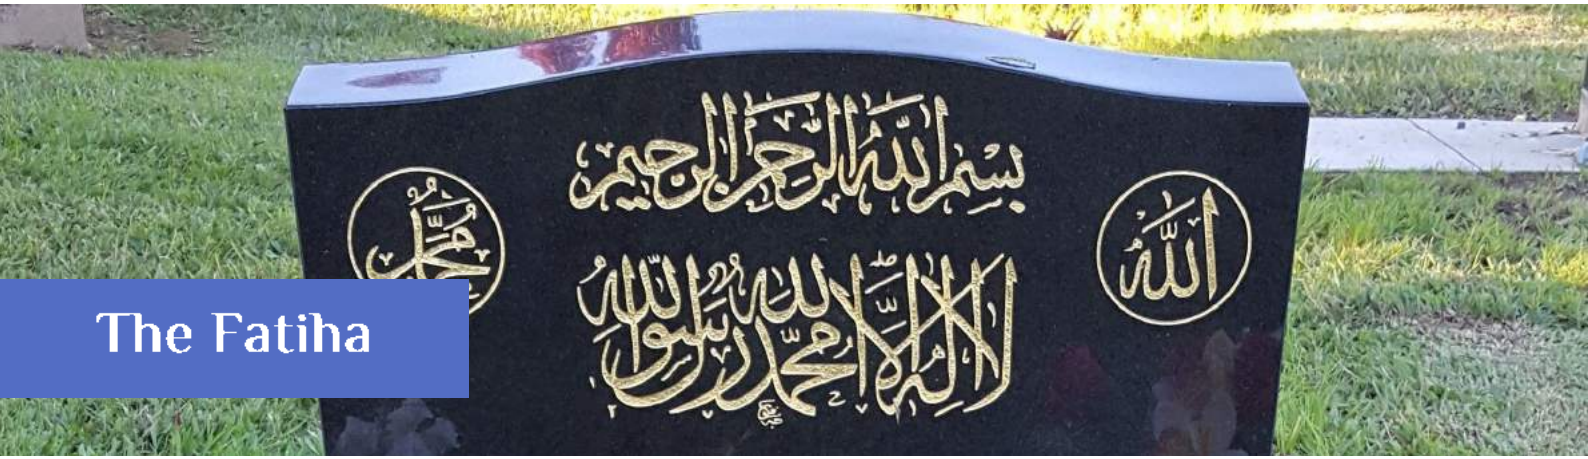 بِسْمِ اللَّهِ الرَّحْمَنِ الرَّحِيمِ
اللَّهُ
مُحَمَّد
لا إله إلا الله محمد رسول الله
The Fatiha